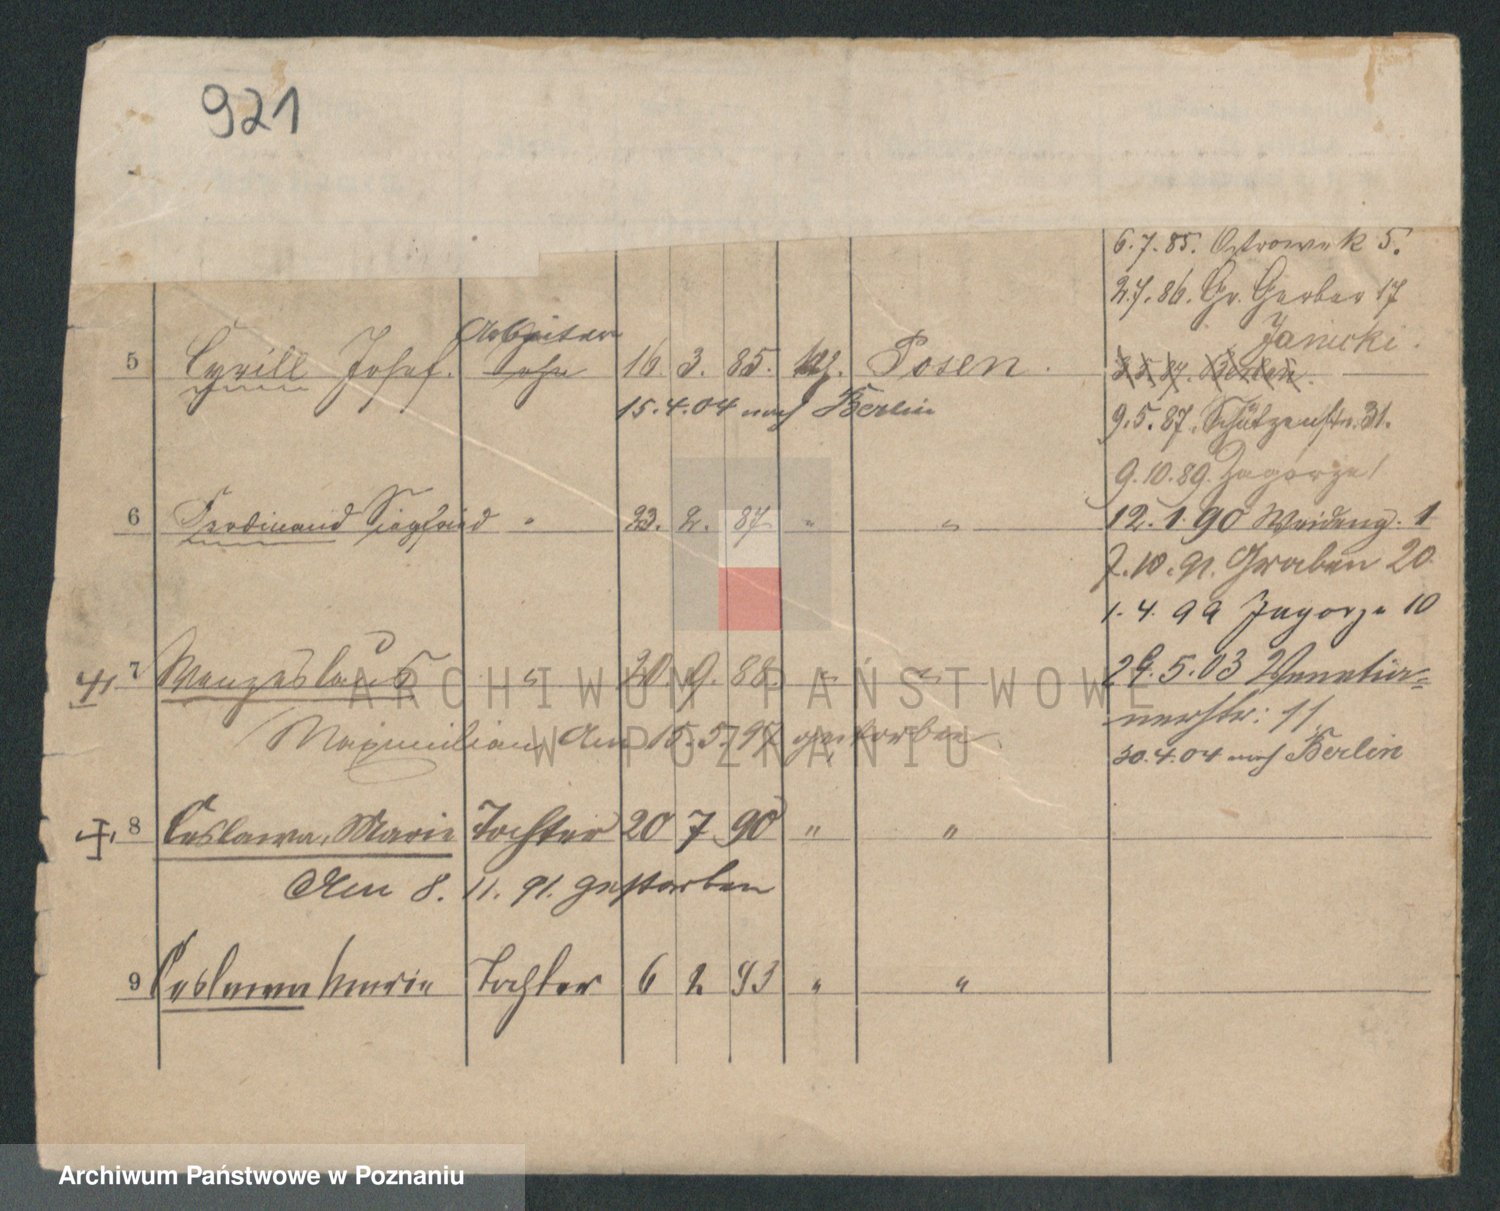 921
6.7.85. Ostrowek 5.
2.7.86. Gr. Gerber 17
Janicki.
Arbeiter
5 Cyrill Josef. Sohn 16. 3. 85. kath. Posen.
15.4.04 nach Berlin
9.5.87. Schützenstr. 31.
9.10.89. Zagorze 1
6 Ferdinand Siegfried " 23. 2. 87 " "
12.1.90 Weideng. 1
7.10.91. Graben 20
1.4.99 Zagorze 10
7 Wenzeslaus " 20 9. 88. " "
29.5.03 Venetia-
nerstr: 11
Maximilian Am 15.5.95 gestorben
30.4.04 nach Berlin
8 Ceslawa, Marie Tochter 20 7 90 " "
Am 8. 11. 91. gestorben
9 Ceslawa Marie Tochter 6 2 93 " "
ARCHIWUM PAŃSTWOWE
W POZNANIU
Archiwum Państwowe w Poznaniu